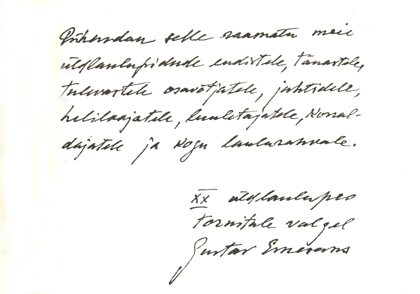 Pühendan selle raamatu meie
üldlaulupidude endistele, tänastele,
tulevastele osavõtjatele, juhtidele,
heliloojatele, luuletajatele, korral-
dajatele ja kogu laulurahvale.
XX üldlaulupeo
tornitule valgel
Gustav Ernesaks